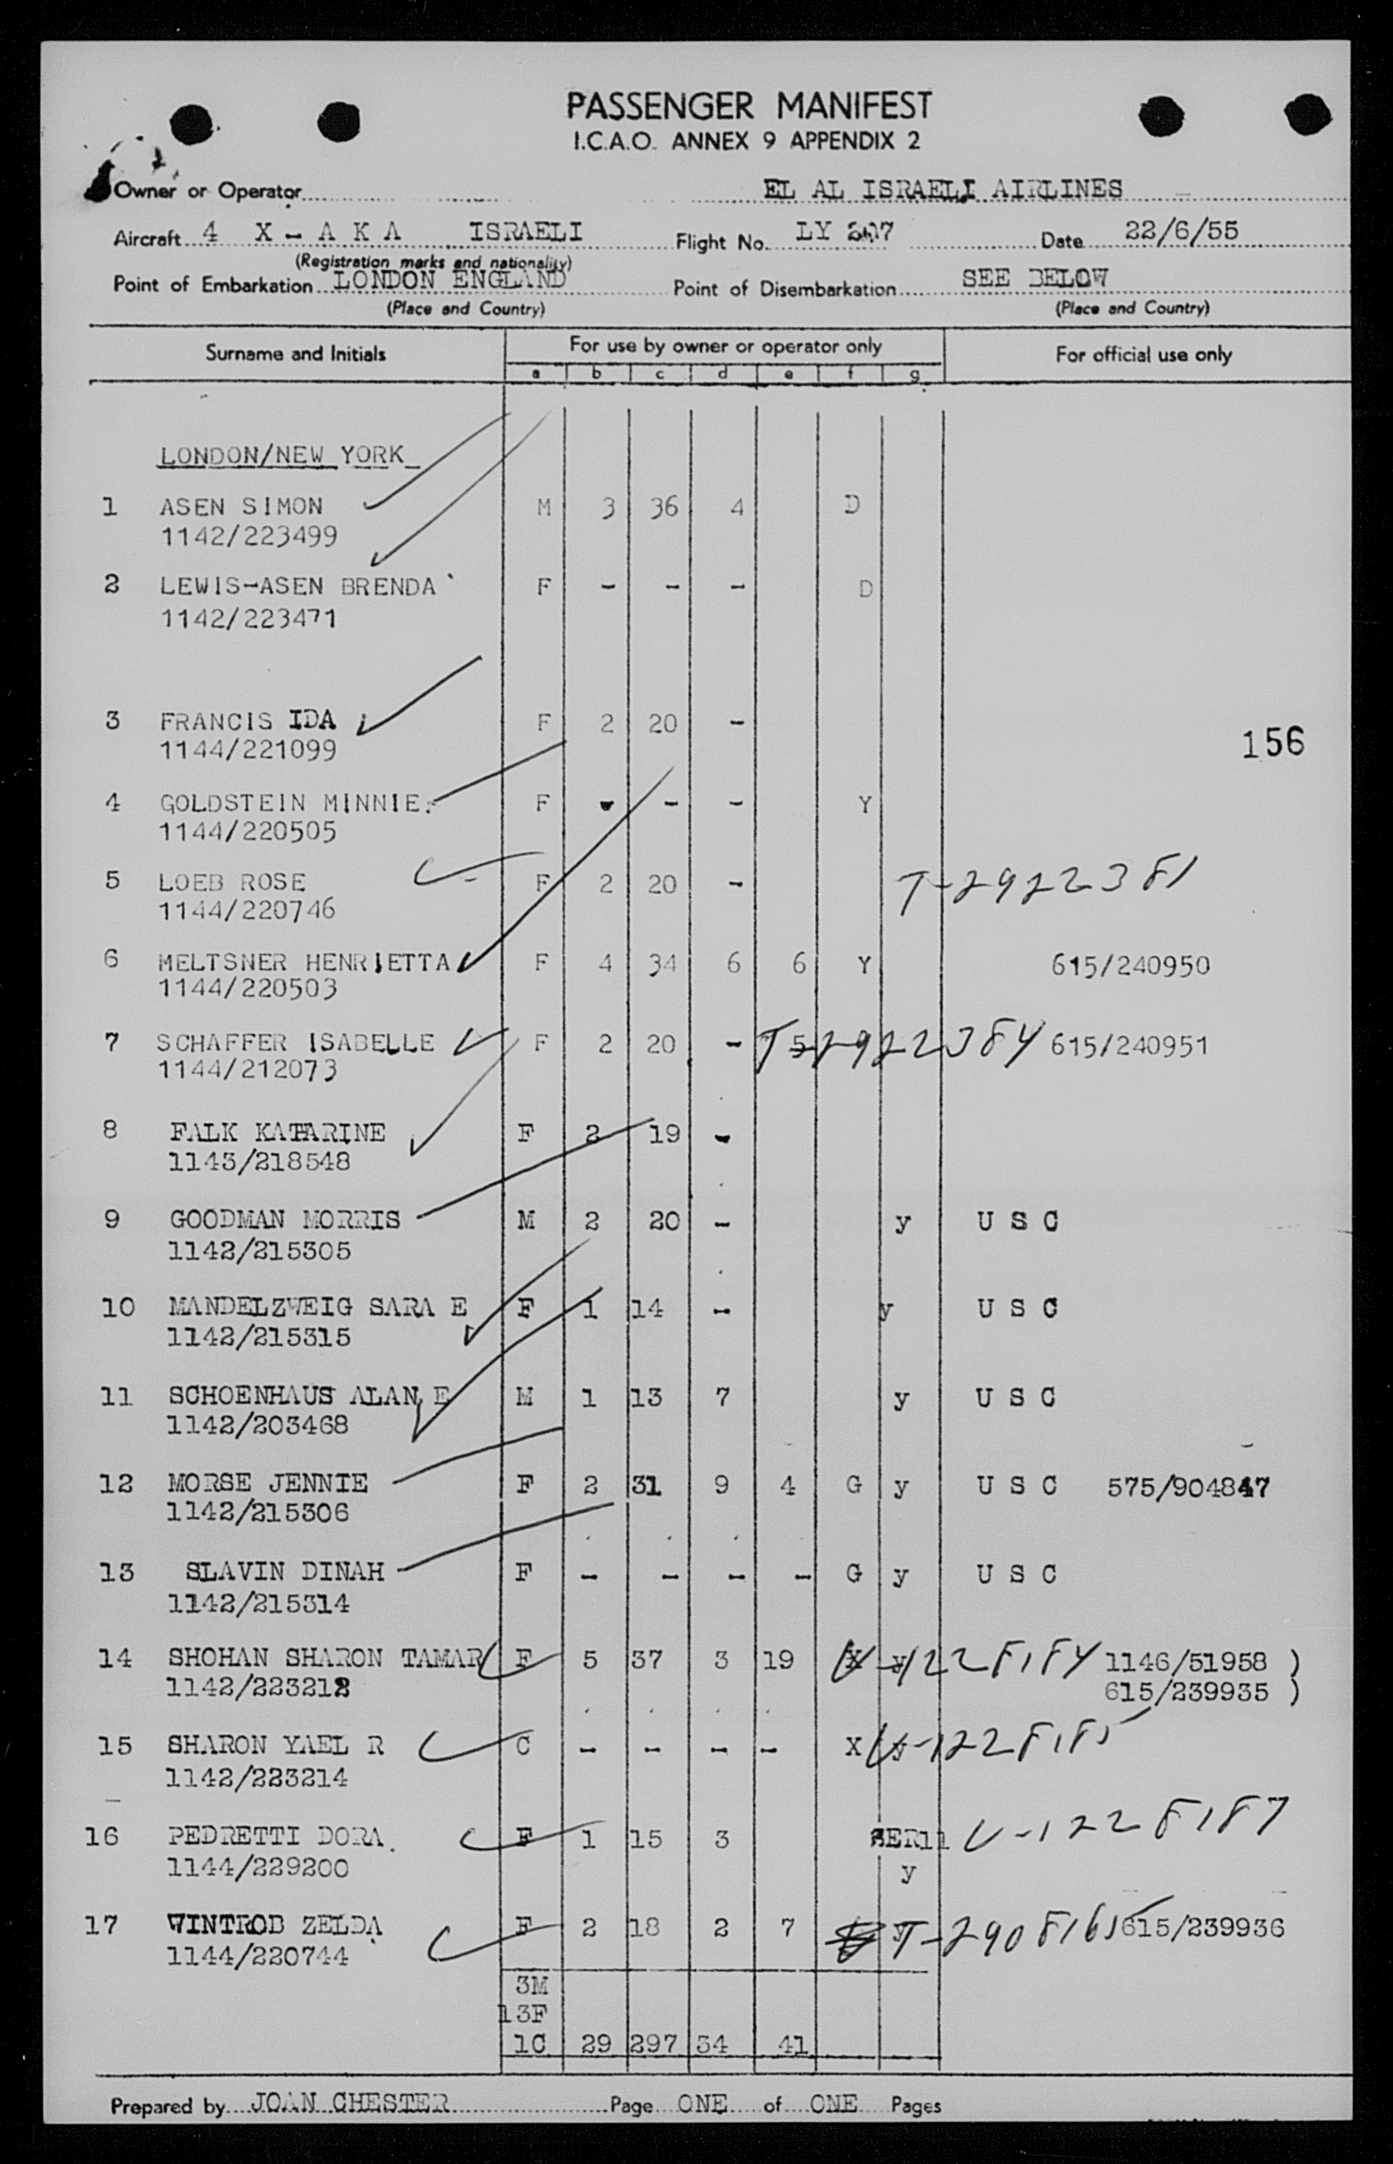 PASSENGER MANIFEST
I.C.A.O. ANNEX 9 APPENDIX 2
Owner or Operator EL AL ISRAELI AIRLINES
Aircraft 4 X - A K A ISRAELI Flight No. LY Date 22/6/55
(Registration marks and nationality)
Point of Embarkation LONDON ENGLAND Point of Disembarkation SEE BELOW
(Place and Country) (Place and Country)
Surname and Initials For use by owner or operator only For official use only
a b c d e f g
LONDON/NEW YORK
1 ASEN SIMON M 3 36 4 D
1142/223499
2 LEWIS-ASEN BRENDA F - - - D
1142/223471
3 FRANCIS IDA F 2 20 -
1144/221099
156
4 GOLDSTEIN MINNIE F - - - Y
1144/220505
5 LOEB ROSE F 2 20 - T-2922381
1144/220746
6 MELTSNER HENRIETTA F 4 34 6 6 Y 615/240950
1144/220503
7 SCHAFFER ISABELLE F 2 20 - 5 T-2922384 615/240951
1144/212073
8 FALK KATARINE F 2 19 -
1143/218548
9 GOODMAN MORRIS M 2 20 - y U S C
1142/215305
10 MANDELZWEIG SARA E F 1 14 - y U S C
1142/215315
11 SCHOENHAUS ALAN E M 1 13 7 y U S C
1142/203468
12 MORSE JENNIE F 2 31 9 4 G y U S C 575/904847
1142/215306
13 SLAVIN DINAH F - - - - G y U S C
1142/215314
14 SHOHAN SHARON TAMAR F 5 37 3 19 X y V-1228184 1146/51958 )
1142/223212 615/239935 )
15 SHARON YAEL R C - - - - X y V-1228185
1142/223214
16 PEDRETTI DORA F 1 15 3 V-1228187
1144/229200 y
17 WINTROB ZELDA F 2 18 2 7 T-2908165 615/239936
1144/220744
3M
13F
1C 29 297 34 41
Prepared by JOAN CHESTER Page ONE of ONE Pages